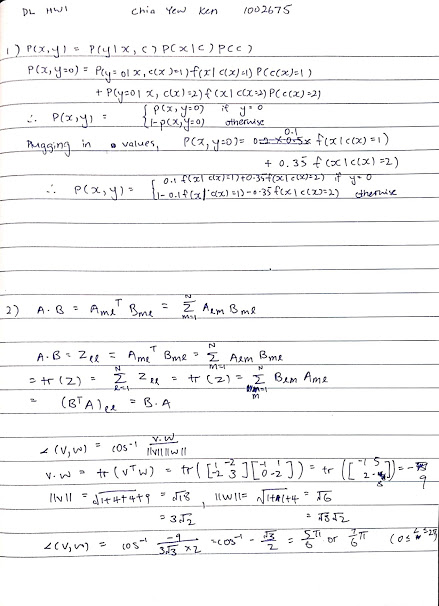 DL HW1 Chia Yew Ken 1002675
1) P(x,y) = P(y|x, c) P(x|c) P(c)
P(x,y=0) = P(y=0|x, c(x)=1) f(x|c(x)=1) P(c(x)=1)
+ P(y=0|x, c(x)=2) f(x|c(x)=2) P(c(x)=2)
∴ P(x,y) = { P(x,y=0) if y=0
1-P(x,y=0) otherwise
Plugging in values, P(x,y=0) = 0.1 f(x|c(x)=1)
+ 0.35 f(x|c(x)=2)
∴ P(x,y) = { 0.1 f(x|c(x)=1)+0.35f(x|c(x)=2) if y=0
1-0.1f(x|c(x)=1)-0.35f(x|c(x)=2) otherwise
2) A·B = Amℓᵀ Bmℓ = Σ Aℓm Bmℓ
A·B = Zℓℓ = Amℓᵀ Bmℓ = Σ Aℓm Bmℓ
= tr(Z) = Σ Zℓℓ = tr(Z) = Σ Bℓm Amℓ
= (BᵀA)ℓℓ = B·A
∠(V,W) = cos⁻¹ V·W / ||V|| ||W||
V·W = tr(VᵀW) = tr([1 -2
-2 3][-1 1
0 -2]) = tr([-1 5
2 -8]) = -9
||V|| = √1+4+4+9 = √18, ||W|| = √1+1+4 = √6
= 3√2 = √3√2
∠(V,W) = cos⁻¹ -9 / 3√3 × 2 = cos⁻¹ -√3/2 = 5π/6 or 7/6 π